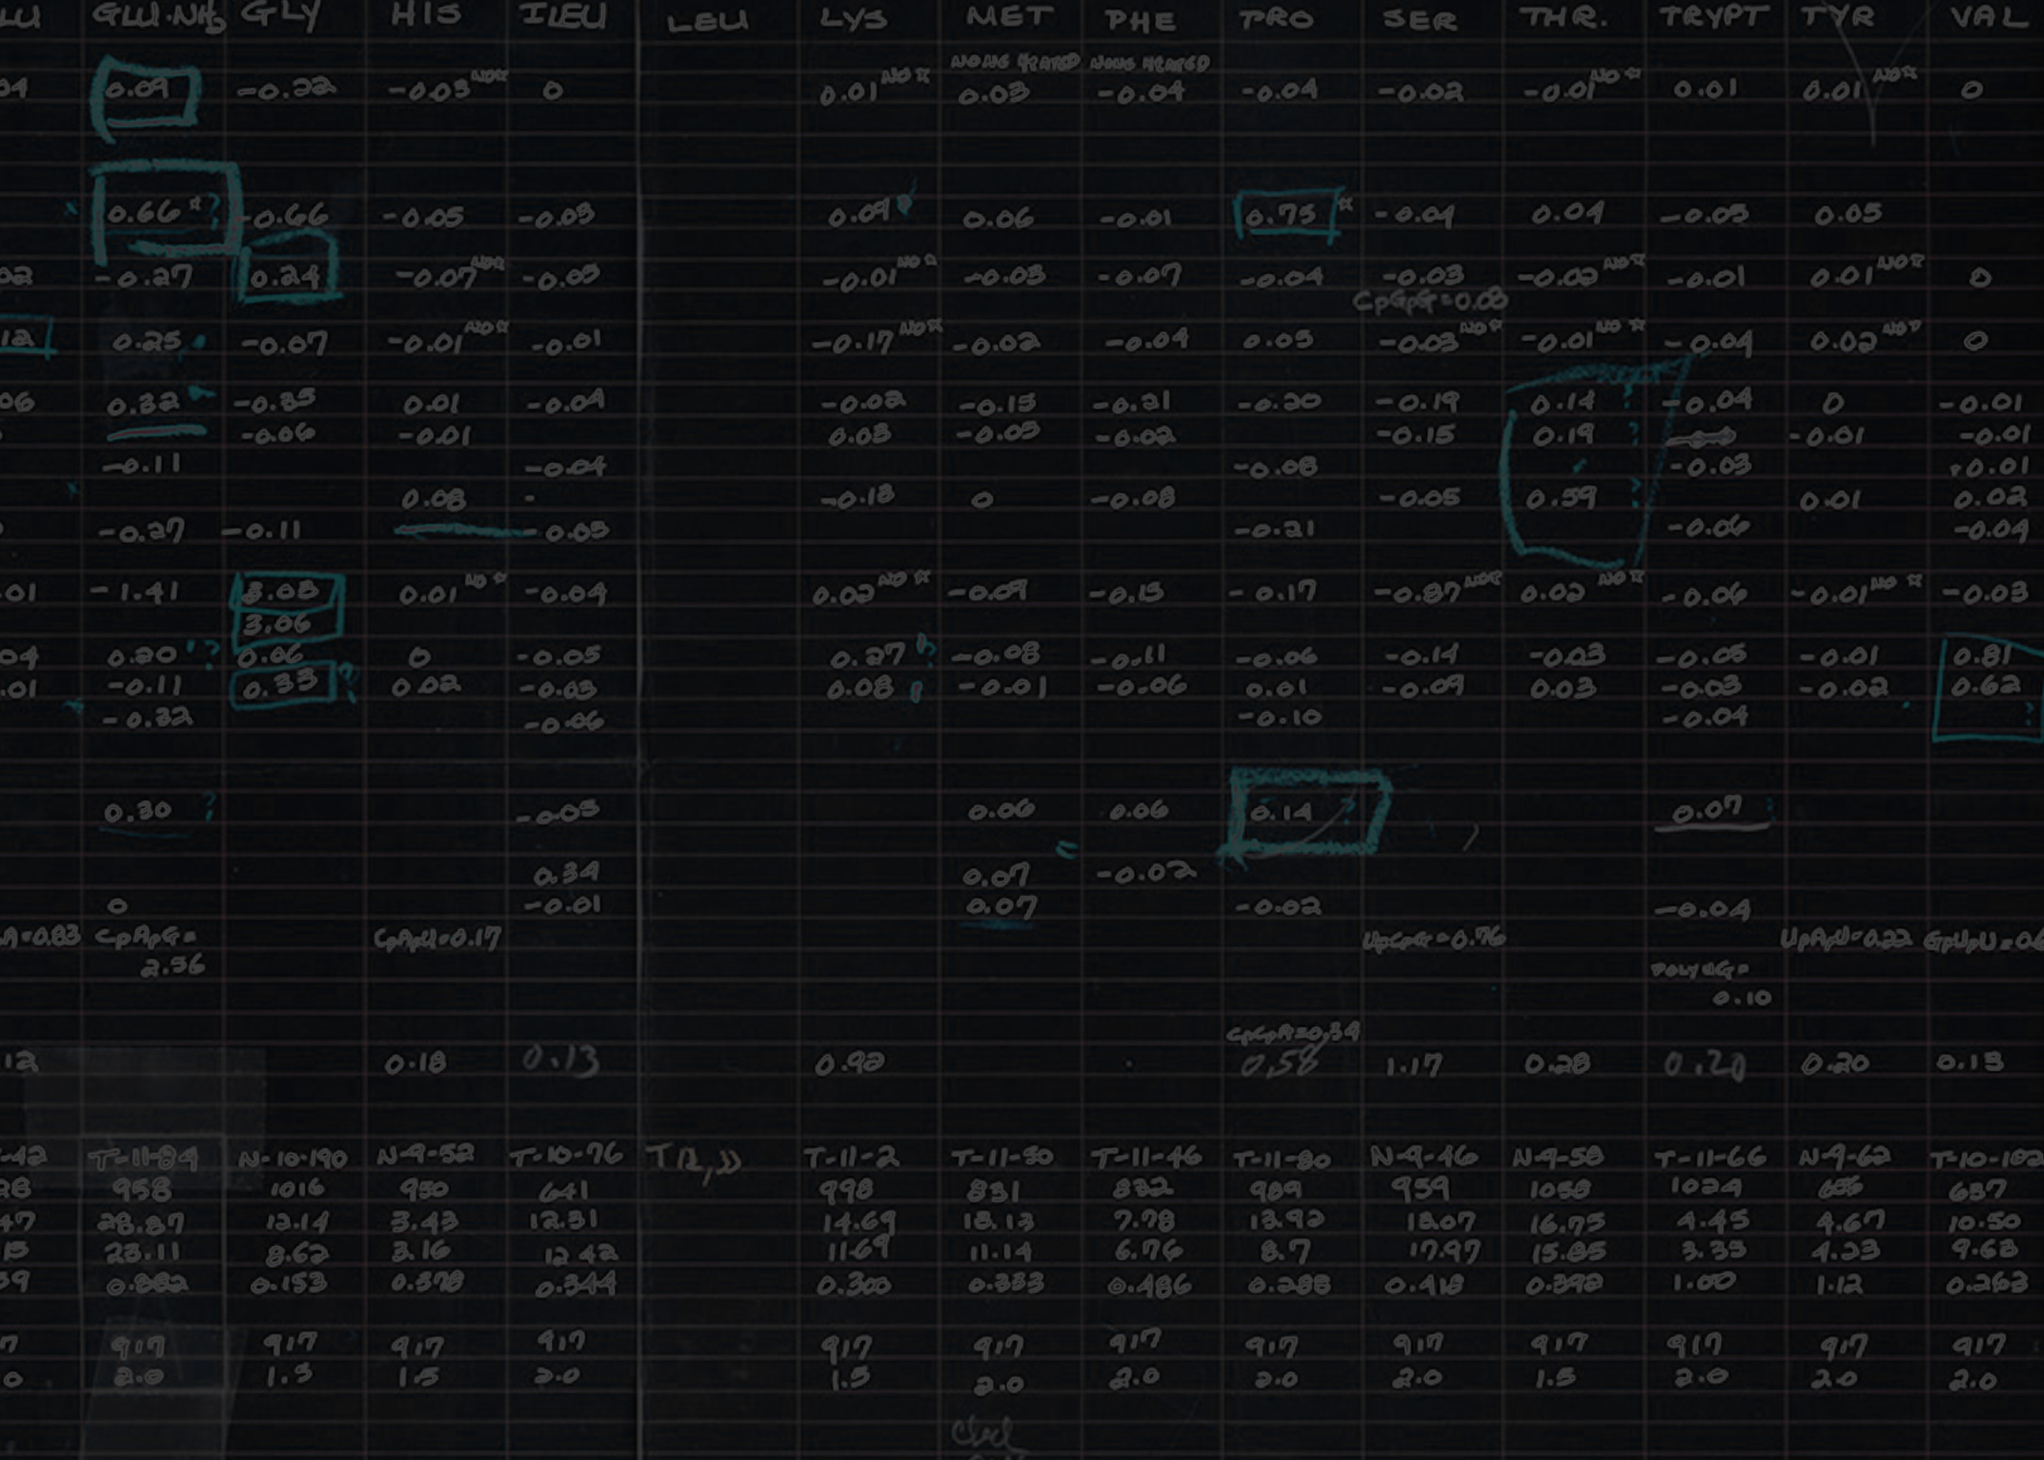 LU GLU·NH2 GLY HIS ILEU LEU LYS MET PHE PRO SER THR. TRYPT TYR VAL
NONE HEATED NONE HEATED
04 0.09 -0.22 -0.03 NO☆ 0 0.01 NO☆ 0.03 -0.04 -0.04 -0.02 -0.01 NO☆ 0.01 0.01 NO☆ 0
0.66☆? -0.66 -0.05 -0.03 0.09? 0.06 -0.01 0.75☆ -0.04 0.04 -0.03 0.05
02 -0.27 0.24 -0.07 NO☆ -0.05 -0.01 NO☆ -0.03 -0.07 -0.04 -0.03 -0.02 NO☆ -0.01 0.01 NO☆ 0
CpGpG=0.08
12 0.25 -0.07 -0.01 NO☆ -0.01 -0.17 NO☆ -0.02 -0.04 0.05 -0.03 NO☆ -0.01 NO☆ -0.04 0.02 NO? 0
06 0.32 -0.35 0.01 -0.04 -0.02 -0.13 -0.21 -0.20 -0.19 0.14 ? -0.04 0 -0.01
-0.06 -0.01 0.03 -0.05 -0.02 -0.15 0.19 ? -0.01 -0.01
-0.11 -0.04 -0.08 -0.03 0.01
0.08 - -0.13 0 -0.08 -0.05 0.59 ? 0.01 0.02
-0.27 -0.11 -0.03 -0.21 -0.06 -0.04
01 -1.41 3.03 0.01 NO☆ -0.04 0.02 NO☆ -0.09 -0.13 -0.17 -0.87 NO? 0.02 NO☆ -0.06 -0.01 NO☆ -0.03
3.06
04 0.20 ? 0.06 0 -0.05 0.27 ? -0.08 -0.11 -0.06 -0.14 -0.03 -0.05 -0.01 0.81
.01 -0.11 0.33 ? 0.02 -0.03 0.08 ? -0.01 -0.06 0.01 -0.09 0.03 -0.03 -0.02 0.62
-0.32 -0.06 -0.10 -0.04 ?
0.30 ? -0.03 0.06 0.06 0.14 ? 0.07
0.34 0.07 -0.02
0 -0.01 0.07 -0.02 -0.04
A=0.83 CpApG= CpApU=0.17 UpCpG=0.76 UpApU=0.22 GpUpU=0.6
2.36 POLY UG=
0.10
CpCpA=0.34
12 0.18 0.13 0.92 0.58 1.17 0.28 0.20 0.20 0.13
-42 T-11-84 N-10-190 N-9-52 T-10-76 T-11-2 T-11-50 T-11-46 T-11-80 N-9-46 N-9-58 T-11-66 N-9-62 T-10-182
28 958 1016 950 641 998 831 832 989 959 1058 1024 656 637
47 28.87 12.14 3.43 12.31 14.69 13.13 7.78 13.92 18.07 16.75 4.45 4.67 10.50
15 23.11 8.62 3.16 12.42 11.69 11.14 6.76 8.7 17.97 15.85 3.33 4.23 9.63
39 0.882 0.153 0.378 0.344 0.300 0.333 0.486 0.288 0.418 0.392 1.00 1.12 0.263
7 917 917 917 917 917 917 917 917 917 917 917 917 917
0 2.0 1.5 1.5 2.0 1.5 2.0 2.0 2.0 2.0 1.5 2.0 2.0 2.0